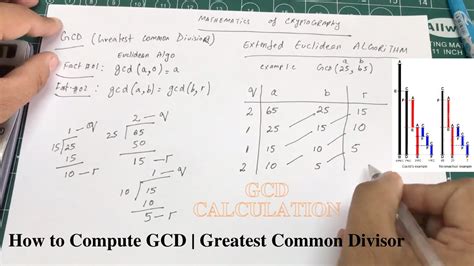 MATHEMATICS of CRYPTOGRAPHY
GCD (Greatest Common Divisor)
Euclidean Algo
Fact no1: gcd(a,0)=a
Fat-no2: gcd(a,b) = gcd(b,r)
2 - q
25 65
50
15 - r
1 - q
15 25
15
10 - r
1 - q
10 15
10
5 - r
Extended Euclidean ALGORITHM
a b
example Gcd(25, 65)
q a b r
2 65 25 15
1 25 15 10
1 15 10 5
2 10 5
GCD
CALCULATION
How to Compute GCD | Greatest Common Divisor